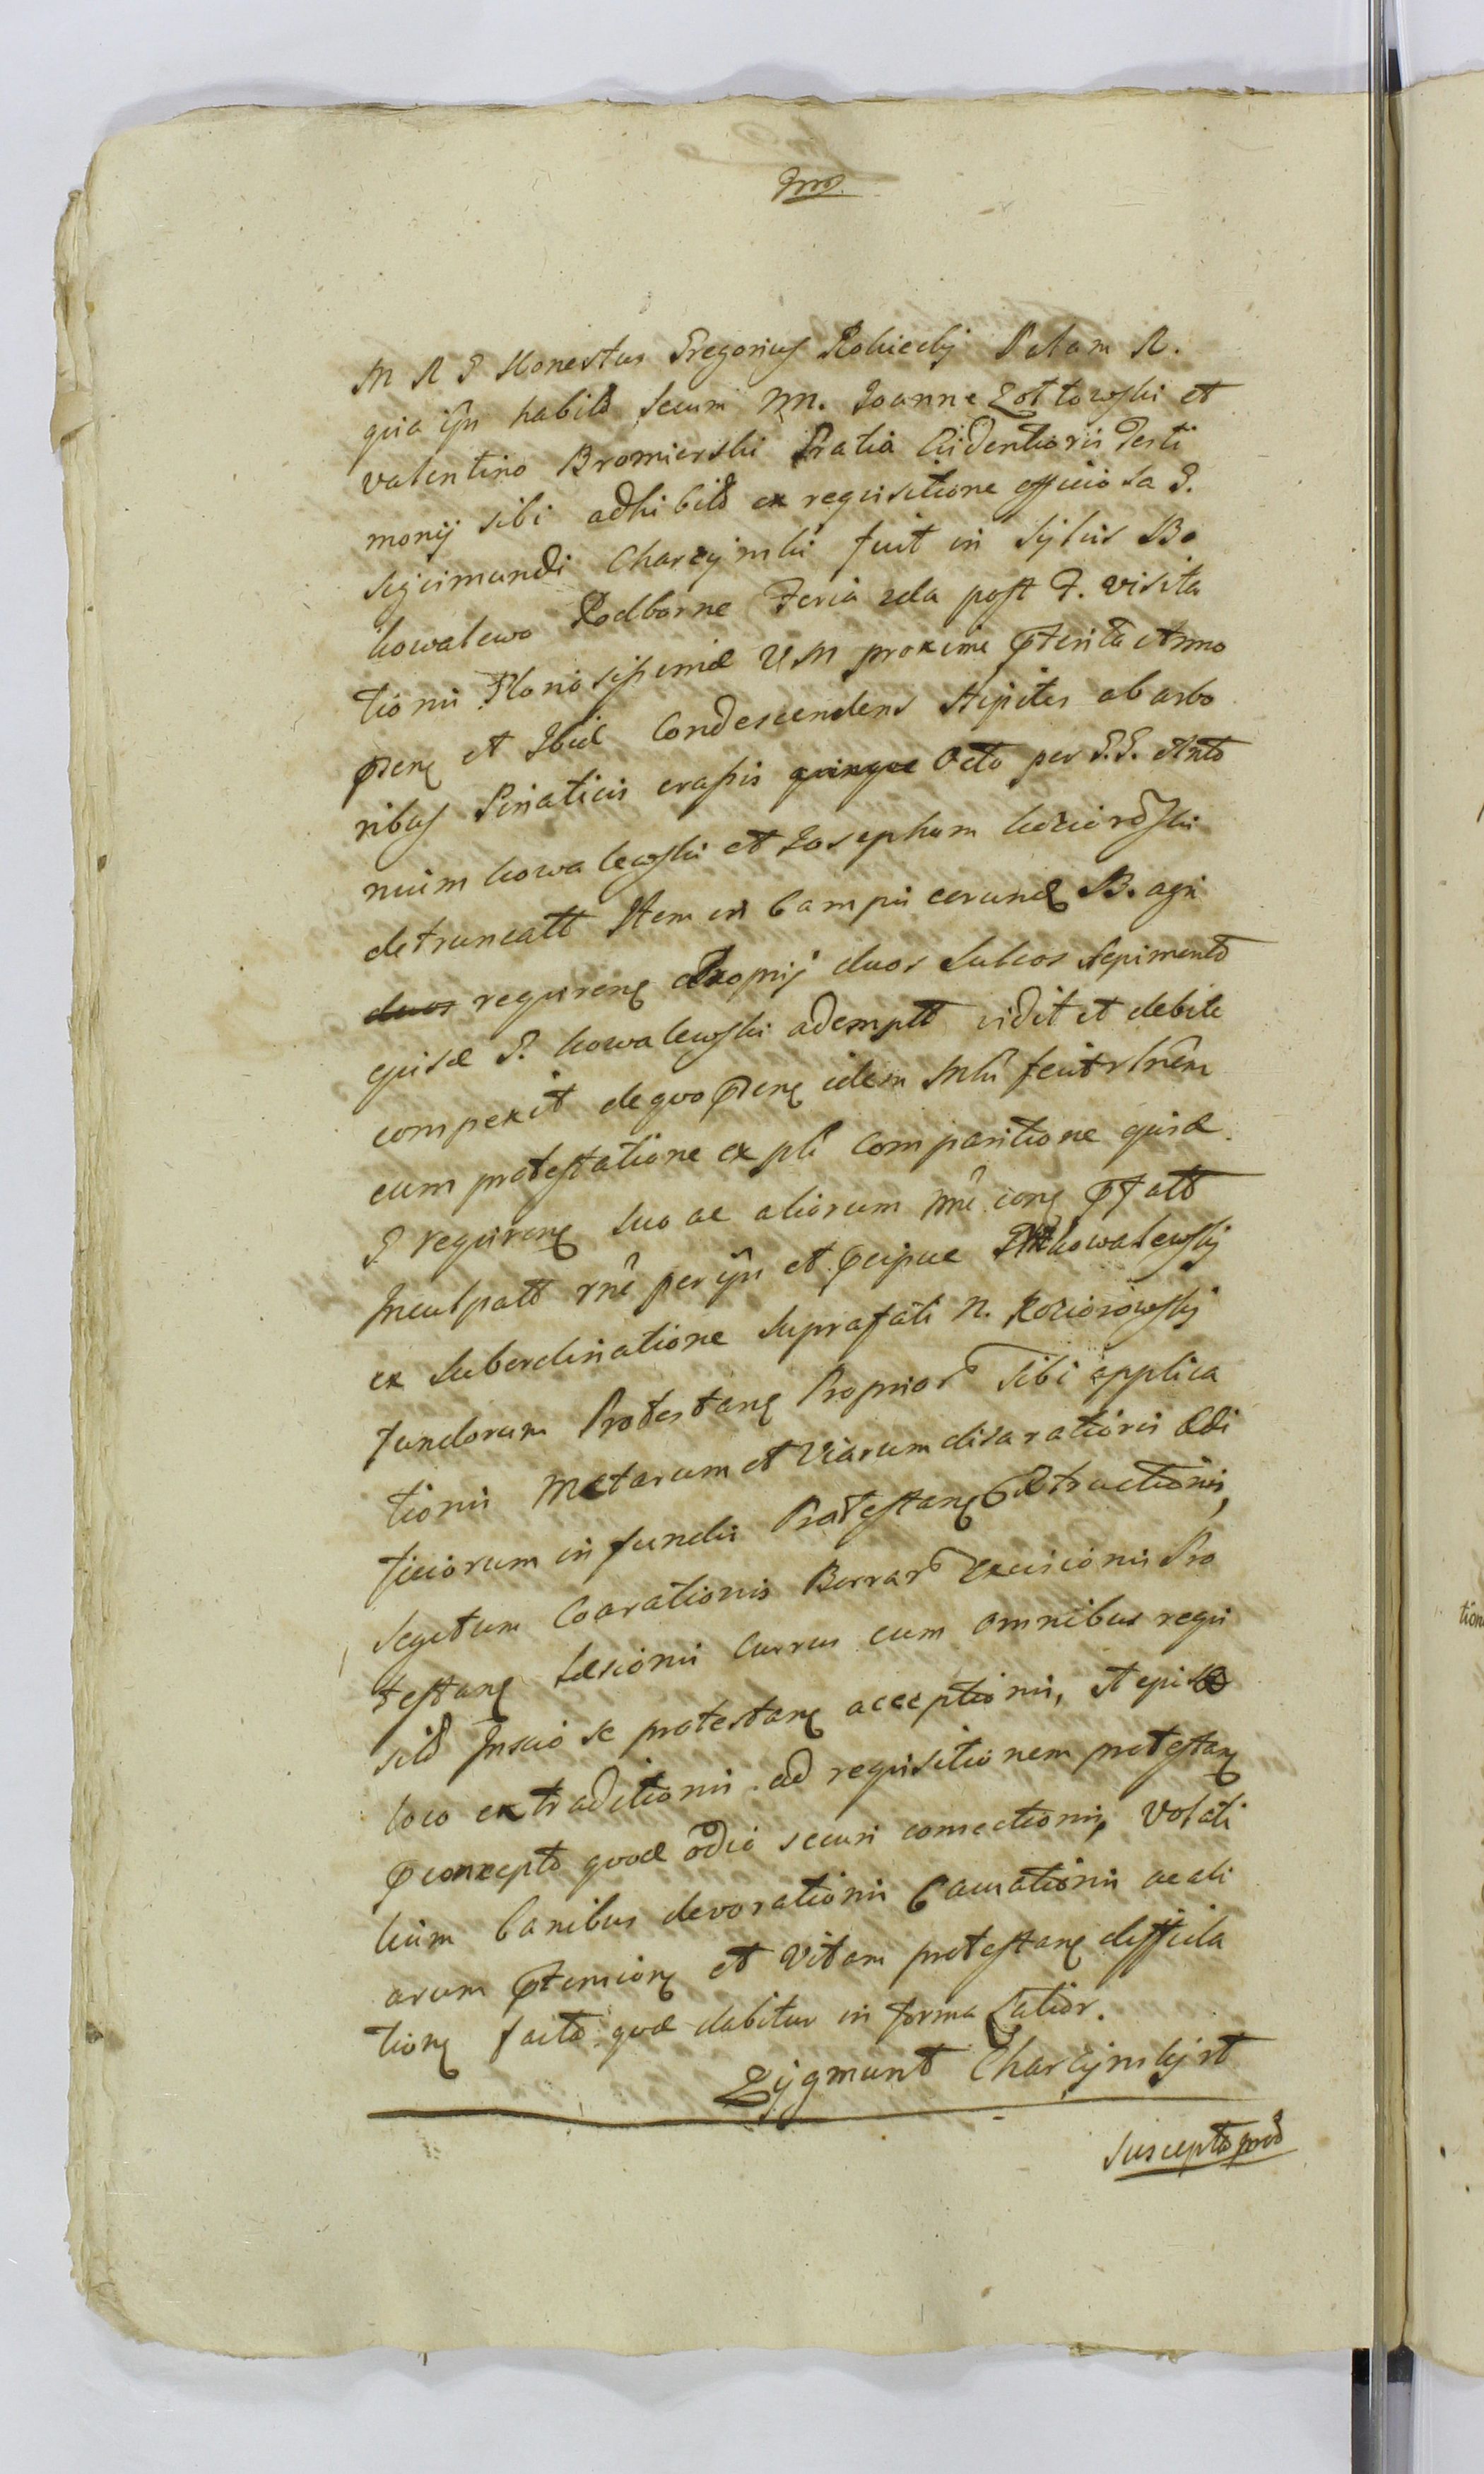 M R S Honestus Gregorius Rokicky Palam R.
quia ijs habito secum NN. Joanne Zołtowski et
valentino Bromierski Gratia Evidentioris Testi
monij sibi adhibito ex requisitione officiosa G.
Sigismundi Charzynski fuit in Sylvis Bo.
kowalewo Podborne Feria 2da post F. Visita
tionis Glorio sissimae VM proxime pterita Anno
pnq et Ibid Condescendens stipites ab arbo
ribus Pinaticis crassis quinque Octo per G.G. Anto
nium kowalewski et Josephum koziorowski
detruncatt Item in Campis eorundq B. agri
duos requirenq Proprij duos sulcos sepimento
ejusd G. kowalewski ademptt vidit et debite
comperit de quo pnq idem Mli fecit rlnem
cum protestatione ex pti comparitione ejusd.
G requirenq suo ac aliorum nne conq pfatt
Inculpatt rne per ijs et pcipue kowalewskij
ex subordinatione suprafati N. koziorowskij
fundorum Protestanq Propriorr sibi applica
tionis Metarum et Viarum disarationis Aedi
ficiorum in fundis Protestanq Extructionis,
segetum Coarationis Borrar Excisionis Pro
testanq Laesionis Currus cum omnibus requi
sitt Inscio se protestanq acceptionis, et ejusd
loco extraditionis ad requisitionem protestanq
pconcepto quod odio securi comectionis, Volati
lium Canibus devorationis Causationis ac ali
arum ptensionq et Vitam protestanq diffida
tionq facto quod dabitur in forma Latior.
Zygmunt Charzynsky rt
Suscepta